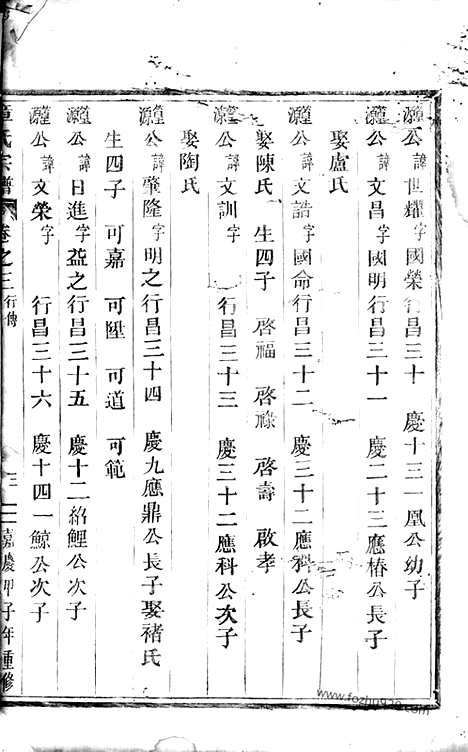 瀍公諱世耀字國榮行昌三十 慶十三一凰公幼子
瀍公諱文昌字國明行昌三十一 慶二十三應椿公長子
娶盧氏
瀍公諱文誥字國命行昌三十二 慶三十二應科公長子
娶陳氏 生四子 啓福 啓祿 啓壽 啟孝
瀍公諱文訓字 行昌三十三 慶三十二應科公次子
娶陶氏
瀍公諱肇隆字明之行昌三十四 慶九應鼎公長子娶褚氏
生四子 可嘉 可陞 可道 可範
瀍公諱日進字益之行昌三十五 慶十二紹鯉公次子
瀍公諱文榮字 行昌三十六 慶十四一鯨公次子
章氏宗譜 卷之三 行傳 三 嘉慶甲子年重修
www.fozhu920.com